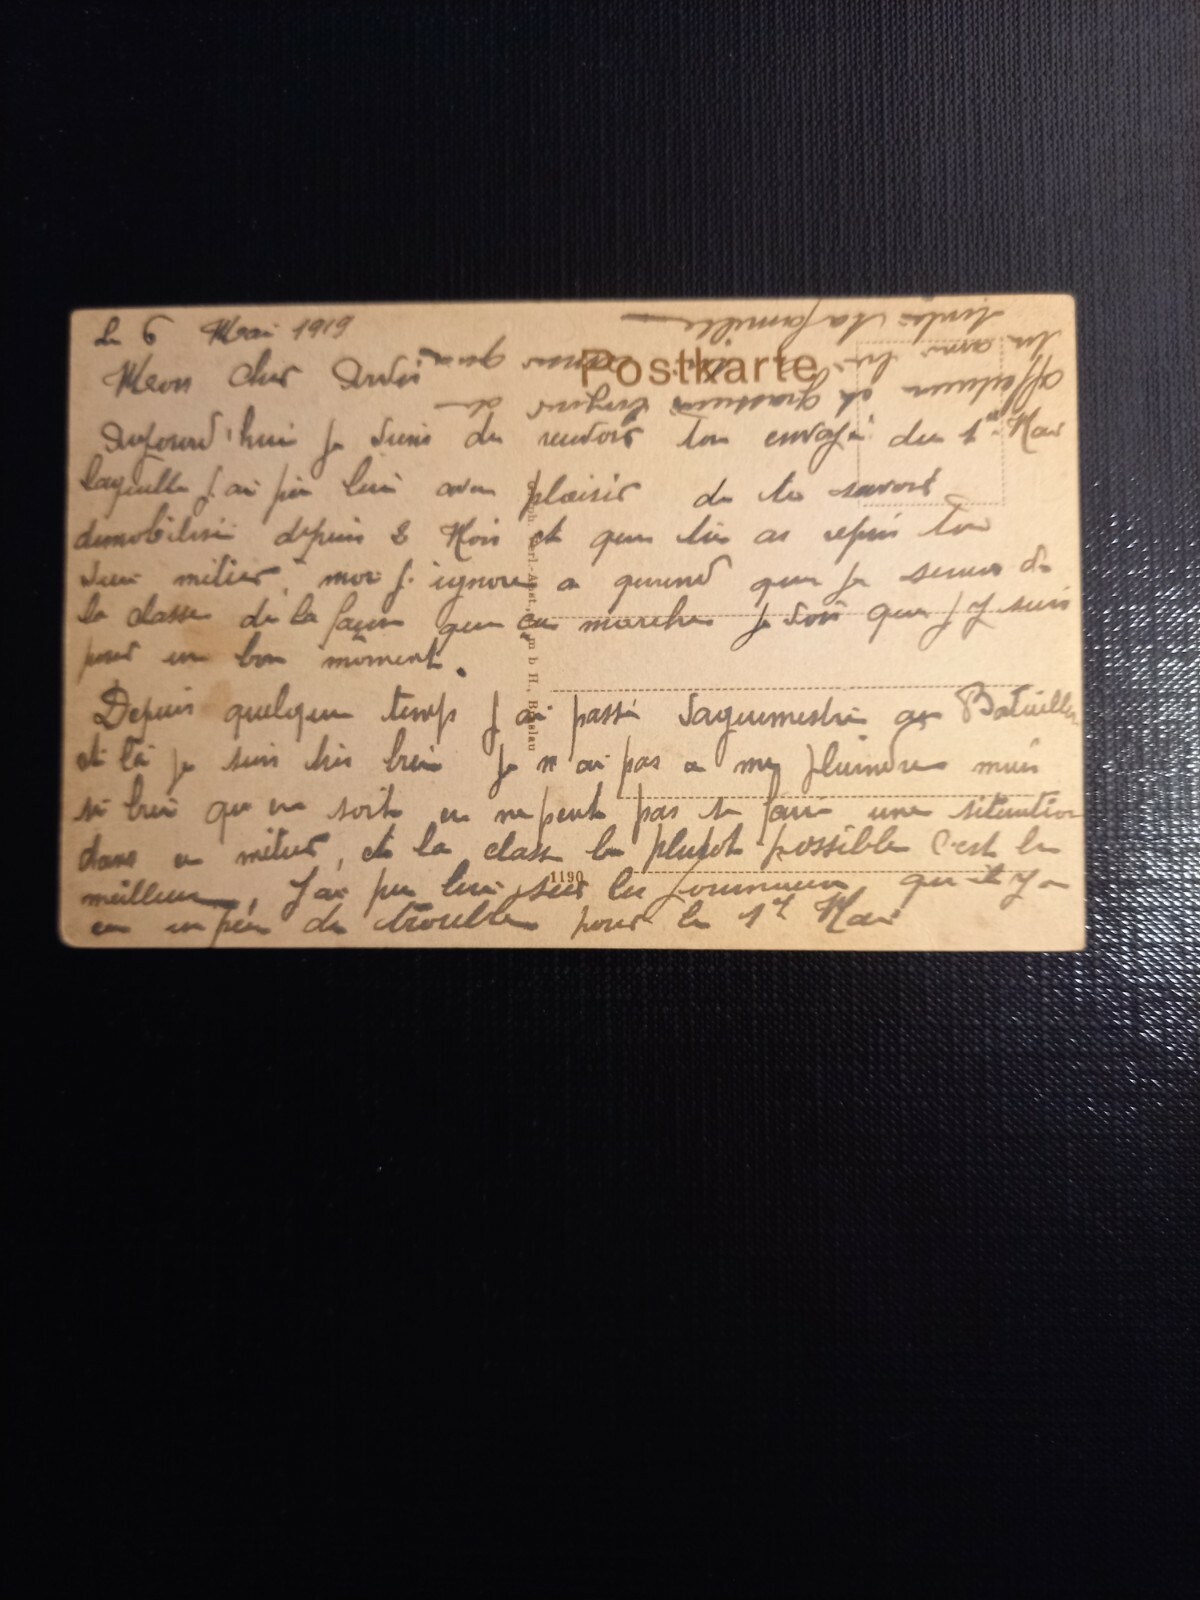 Le 6 Mai 1919
Mon cher
Postkarte
Aujourd'hui je viens de recevoir ton envoyé du 1er Mai
laquelle j'ai pu lire avec plaisir de te savoir
démobilisé depuis 2 Mois et que tu as repris ton
vieux métier, moi j'ignore a quand que je serais de
la classe de la façon que ça marche je vois que j'y suis
pour un bon moment.
Depuis quelque temps j'ai passé Vaguemestre au Bataillon
et là je suis très bien je n'ai pas a me plaindre mais
si bien qu'on soit on ne peut pas se faire une situation
dans ce métier, et la classe le plutot possible c'est le
meilleur, J'ai pu lire sur les journaux qu'il y a
eu un peu de trouble pour le 1er Mai
affectueux et gracieux de
ton ami
toute ta famille
1190